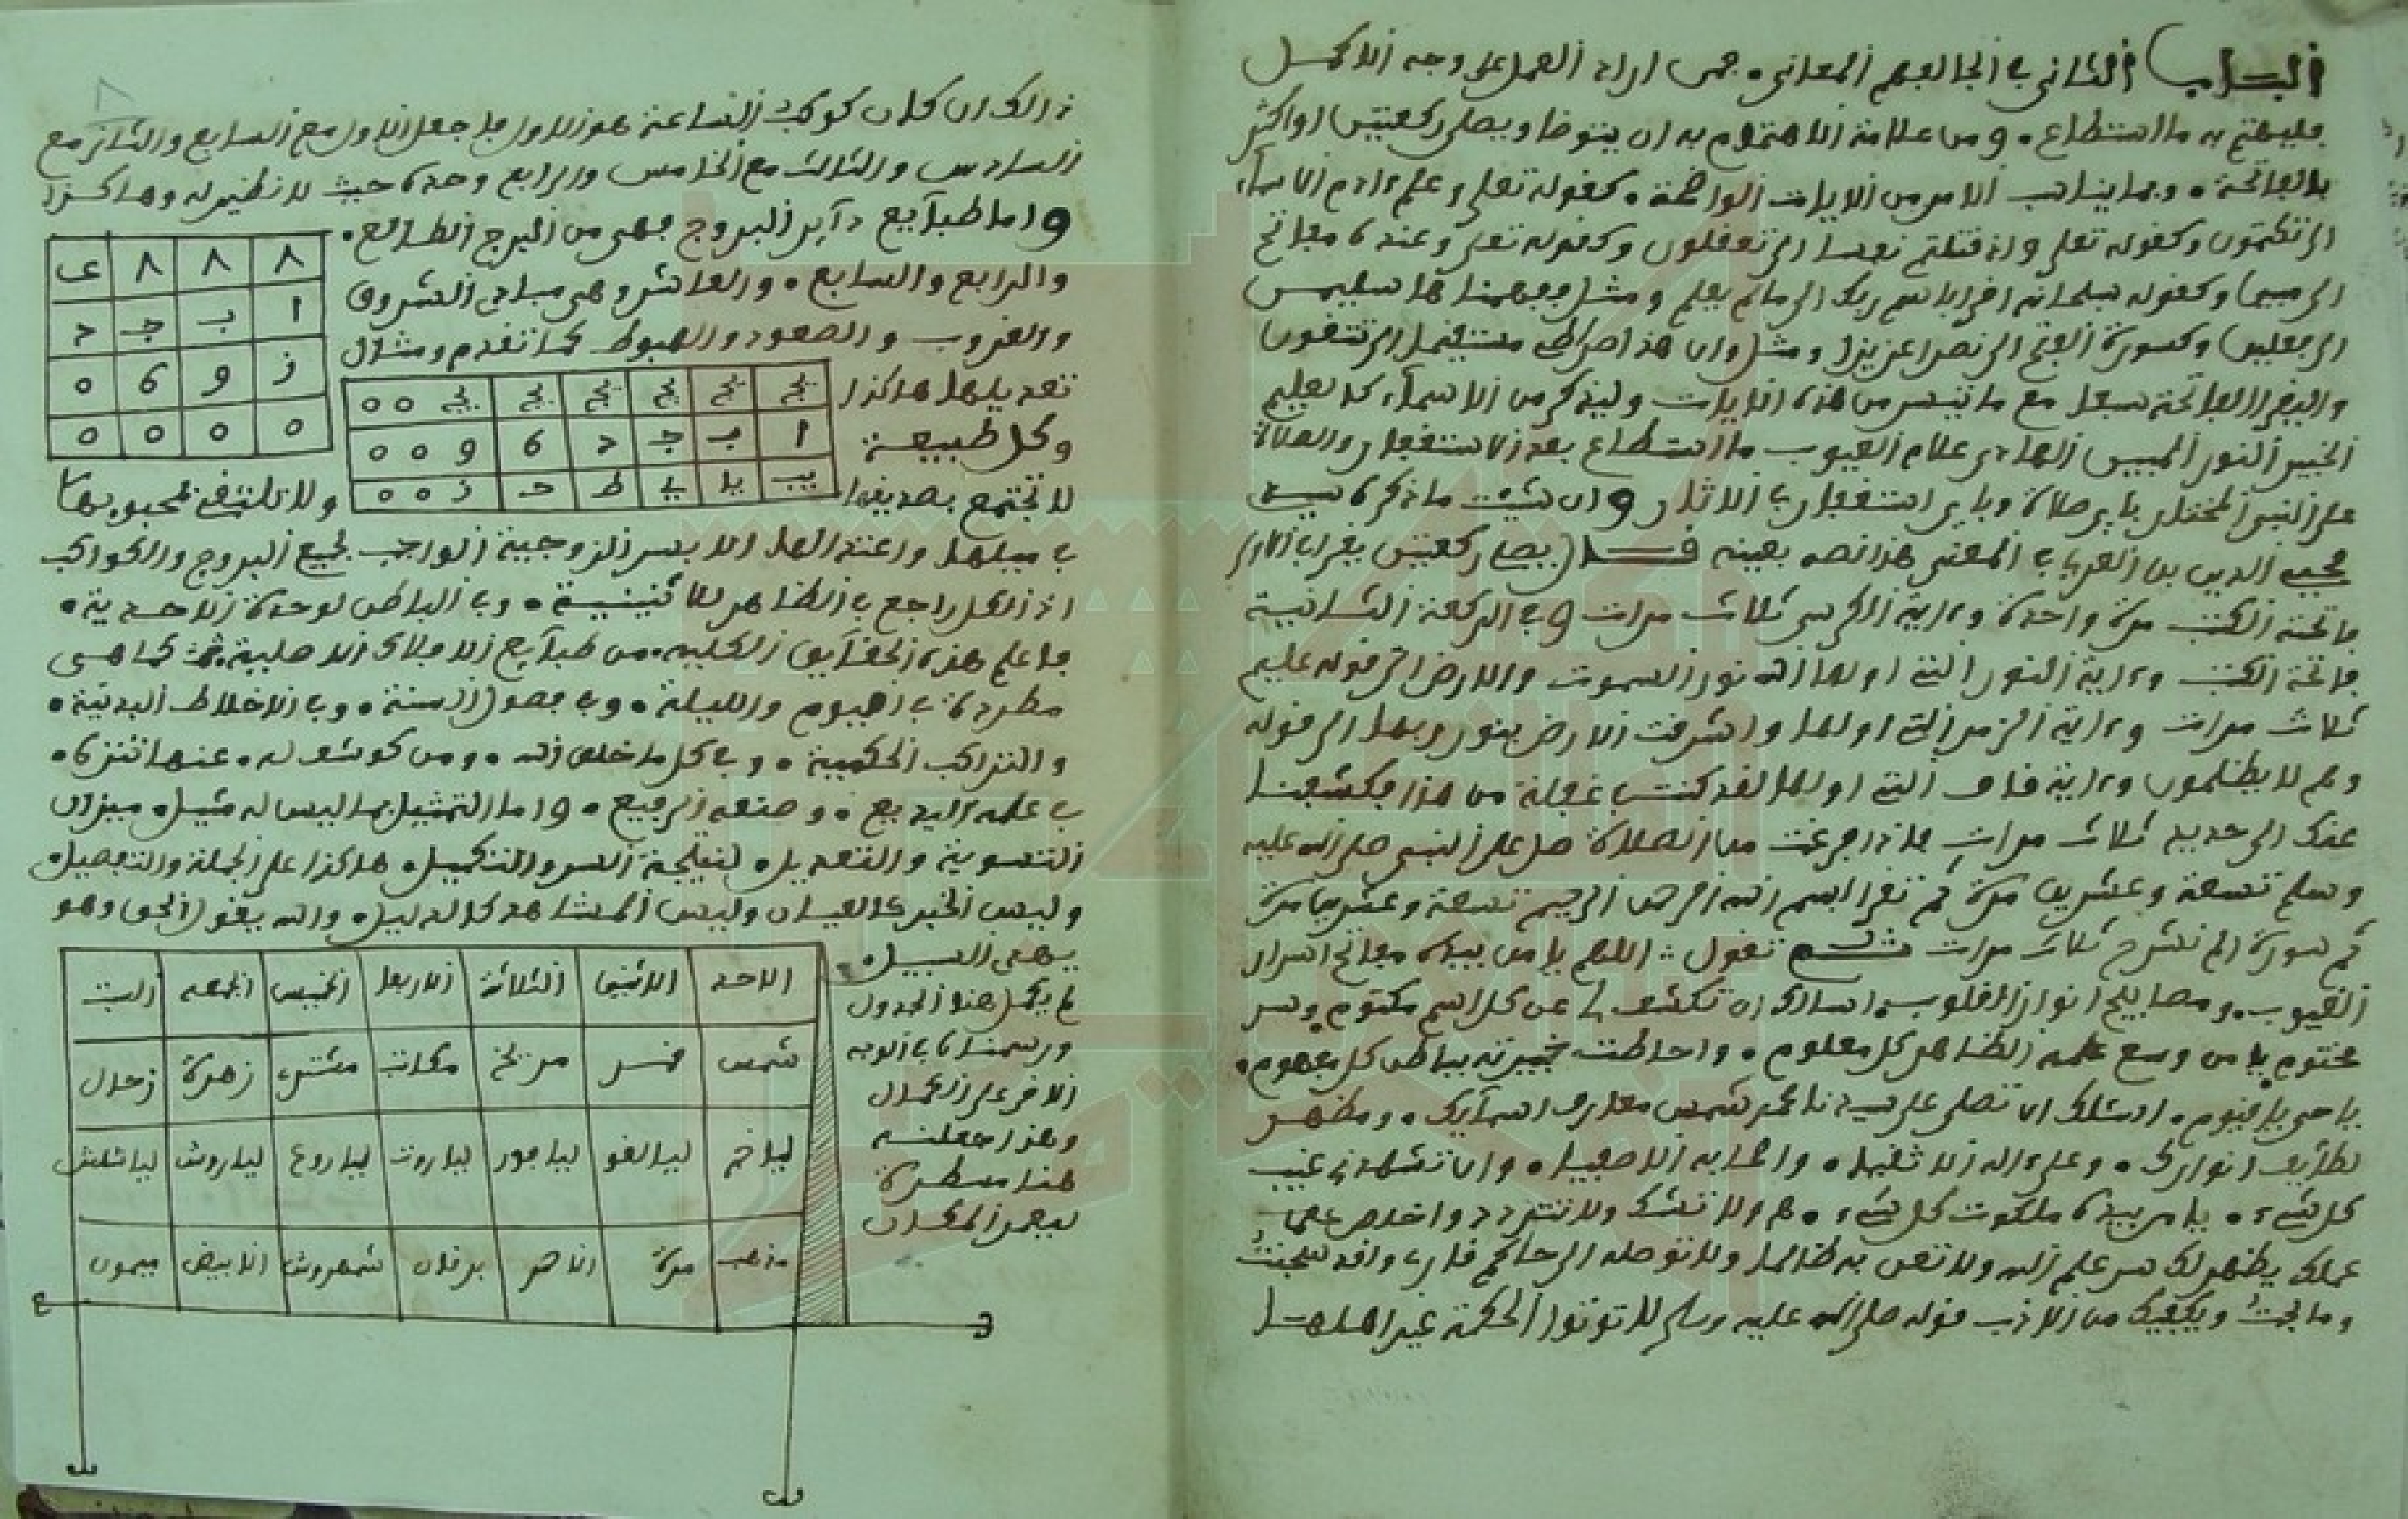 الباب الثاني في الجالبهم المعاني فمن اراد العمل على وجه الاكمل
فليهتم به ما استطاع ومن علامة الاهتمام به ان يتوضا ويصلي ركعتين او اكثر
بالفاتحة وبما يناسب الامر من الايات الواضحة كقوله تعلى وعلم ءادم الاسماء
الى تكتمون وكقوله تعلى واذ قتلتم نفسا الى تعقلون وكقوله تعلى وعنده مفاتح
الى مبين وكقوله سبحانه اقرا باسم ربك الى مالم يعلم ومثل ففهمناها سليمن
الى فعلين وكسورة الفتح الى نصرا عزيزا ومثل وان هذا صراطي مستقيما الى تتقون
وليقرا الفاتحة سبعا مع ما تيسر من هذه الايات وليذكر من الاسماء كا لعليم
الخبير النور المبين الهادي علام الغيوب ما استطاع بعد الاستغفار والصلاة
على النبي المختار باي صلاة وباي استغفار في الاثار وان شيت ما ذكره سيد
محيي الدين بن العربي في المعنى هذا نصه بعينه قال يصلي ركعتين يقرا في الاولى
فاتحة الكتب مرة واحدة وءاية الكرسي ثلاث مرات وفي الركعة الثانية
فاتحة الكتب وءاية النور التي اولها الله نور السموت والارض الى قوله عليم
ثلاث مرات وءاية الزمر التي اولها واشرقت الارض بنور ربها الى قوله
وهم لا يظلمون وءاية قاف التي اولها لقد كنت في غفلة من هذا فكشفنا
عنك الى حديد ثلاث مرات فاذا فرغت من الصلاة صل على النبي صلى الله عليه
وسلم تسعة وعشرين مرة ثم تقرا بسم الله الرحمن الرحيم تسعة وعشرين مرة
ثم سورة الم نشرح ثلاث مرات ثم تقول اللهم يا من بيده مفاتح اسرار
الغيوب ومصابيح انوار القلوب اسالك ان تكشف لي عن كل اسم مكتوم وسر
مختوم يا من وسع علمه الظاهر كل معلوم واحاطت خبرته بباطن كل مفهوم
يا حي يا قيوم اسئلك ان تصلي على سيدنا محمد شمس معارف اسمايك ومظهر
لطايف انوارك وعلى ءاله الاتقيا واصحابه الاصفيا وان تشهدني غيب
كل شيء يا من بيده ملكوت كل شيء ولا تشك ولا تتردد واخلص
عملك يظهر لك سر علم الله ولا تعن به ظالما ولا توصله الى حاكم
وما بحت ويكفيك من الادب قوله صلى الله عليه وسلم لا توتوا الحكمة غير اهلها
ذالك ان كان كوكب الساعة هو الاول فاجعل الاول مع السابع والثاني مع
السادس والثالث مع الخامس والرابع وحده حيث لا نظير له وهاكذا
واما طبايع داير البروج فهي من البرج الطالع
والرابع والسابع والعاشر وهي مبادي الشروق
والغروب والصعود والهبوط كما تقدم ومثال
تعديلها هاكذا
وكل طبيعة
لا تجتمع بضديها ولا تلتقي بمحبوبها
٨ ٨ ٨
ا ب ج د
ز و ٥ ٥
٥ ٥ ٥ ٥
ا ب ج د ٥ و ٥ ٥
يب يا ي ط ح ز ٥ ٥
في ميلها واعتدالها الا بسر الزوجية الواجب لجميع البروج والكواكب
اذ الكل راجع في الظاهر للاثنينية وفي الباطن لوحدة الاحدية
فاعلم هذه الحقايق الكلية من طبايع الافلاك الاصلية كما هي
مطردة في اليوم والليلة وفي فصول السنة وفي الاخلاط البدنية
والتراكب الحكمية وفي كل ما خلق الله ومن كوشف له عنها تنزه
في علمه البديع وصنعه الرفيع واما التمثيل بما ليس له مثيل ميزان
التسوية والتعديل لنتيجة السر والتكميل هاكذا على الجملة والتفصيل
وليس الخبر كالعيان وليس المشاهد كالدليل والله يقول الحق وهو
يهدي السبيل
لم يكمل هذا الجدول
ورسمناه في الوجه
الاخر على الكمال
وهذا جعلته
هنا مسطرة
لبعض المكان
الاحد الاثنين الثلاثة الاربعا الخميس الجمعه السبت
شمس قمر مريخ مكاتب مشتري زهرة زحال
لياخم ليالغو ليافور لياروث لياروغ لياروش لياشلش
مذهب مرة الاحمر برقان شمهروش الابيض ميمون